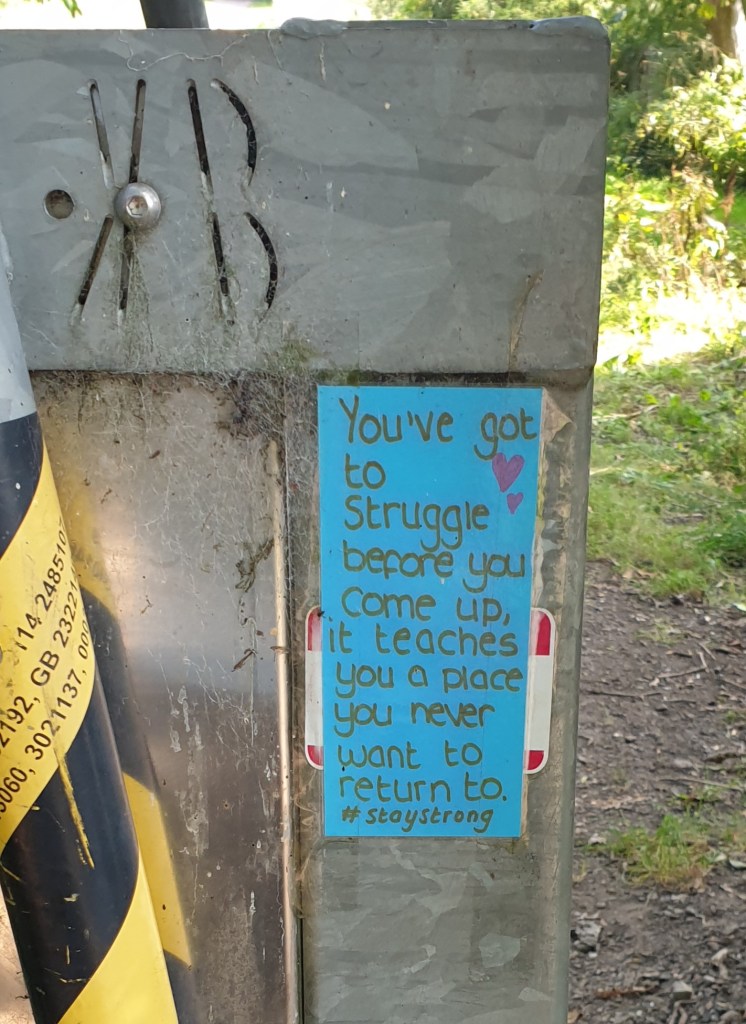 KB
You've got
to
Struggle
before you
come up,
it teaches
you a place
you never
want to
return to.
#staystrong
114 2485107
2192, GB 2322
6060, 3021137, 00